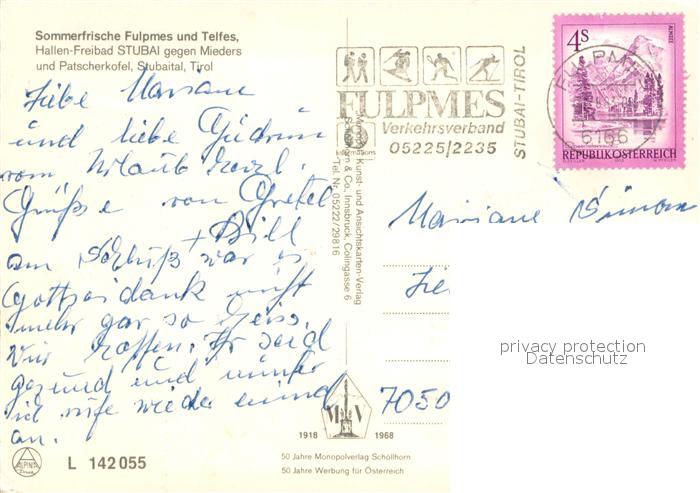 Sommerfrische Fulpmes und Telfes,
Hallen-Freibad STUBAI gegen Mieders
und Patscherkofel, Stubaital, Tirol
Liebe Mariane
und liebe Gudrun
vom Urlaub herzl.
Grüße von Gretel
+ Bill
am Schluß war es
Gottseidank nicht
mehr gar so heiss.
Wir hoffen, Ihr seid
gesund und munter
ich rufe wieder einmal
an.
FULPMES
Verkehrsverband
05225/2235
STUBAI-TIROL
4S
FULPMES
6166
REPUBLIK ÖSTERREICH
Kunst- und Ansichtskarten-Verlag
& Co., Innsbruck, Colingasse 6
Tel. Nr. 05222/29816
Mariane Simon
7050
privacy protection
Datenschutz
MSV
1918 1968
50 Jahre Monopolverlag Schöllhorn
50 Jahre Werbung für Österreich
ALPINA
L 142055